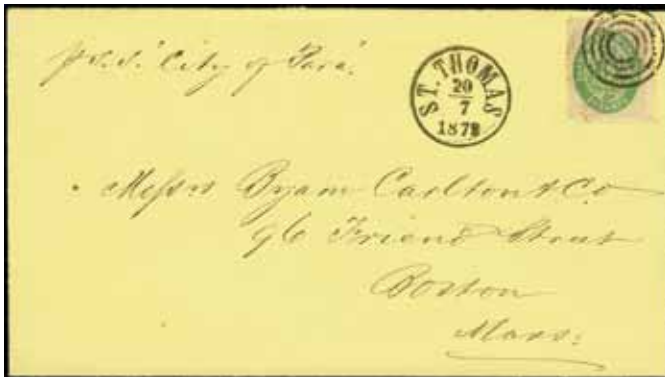 p S.S. "City of Para".
ST. THOMAS
20
7
1878
Messrs Byam Carlton & Co
96 Friend Street
Boston
Mass: